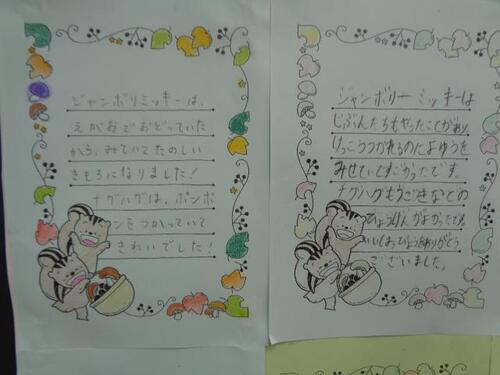 ジャンボリミッキーは、
えがおでおどっていた
から、みていてたのしい
きもちになりました!
ナグハグは、ポンポ
ンをつかっていて
きれいでした!
ジャンボリーミッキーは
じぶんたちもやったことがあり、
けっこうつかれるのによゆうを
みせていてすごかったです。
ナグハグもうごきなどの
ひょうげんがよかったです。
ありがとう
ございました。